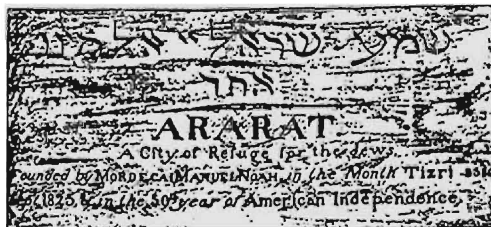 שמע ישראל
אחד
ARARAT
A City of Refuge for the Jews
ounded by MORDECAI MANUEL NOAH, in the Month Tizri
1825 & in the 50th year of American Independence.